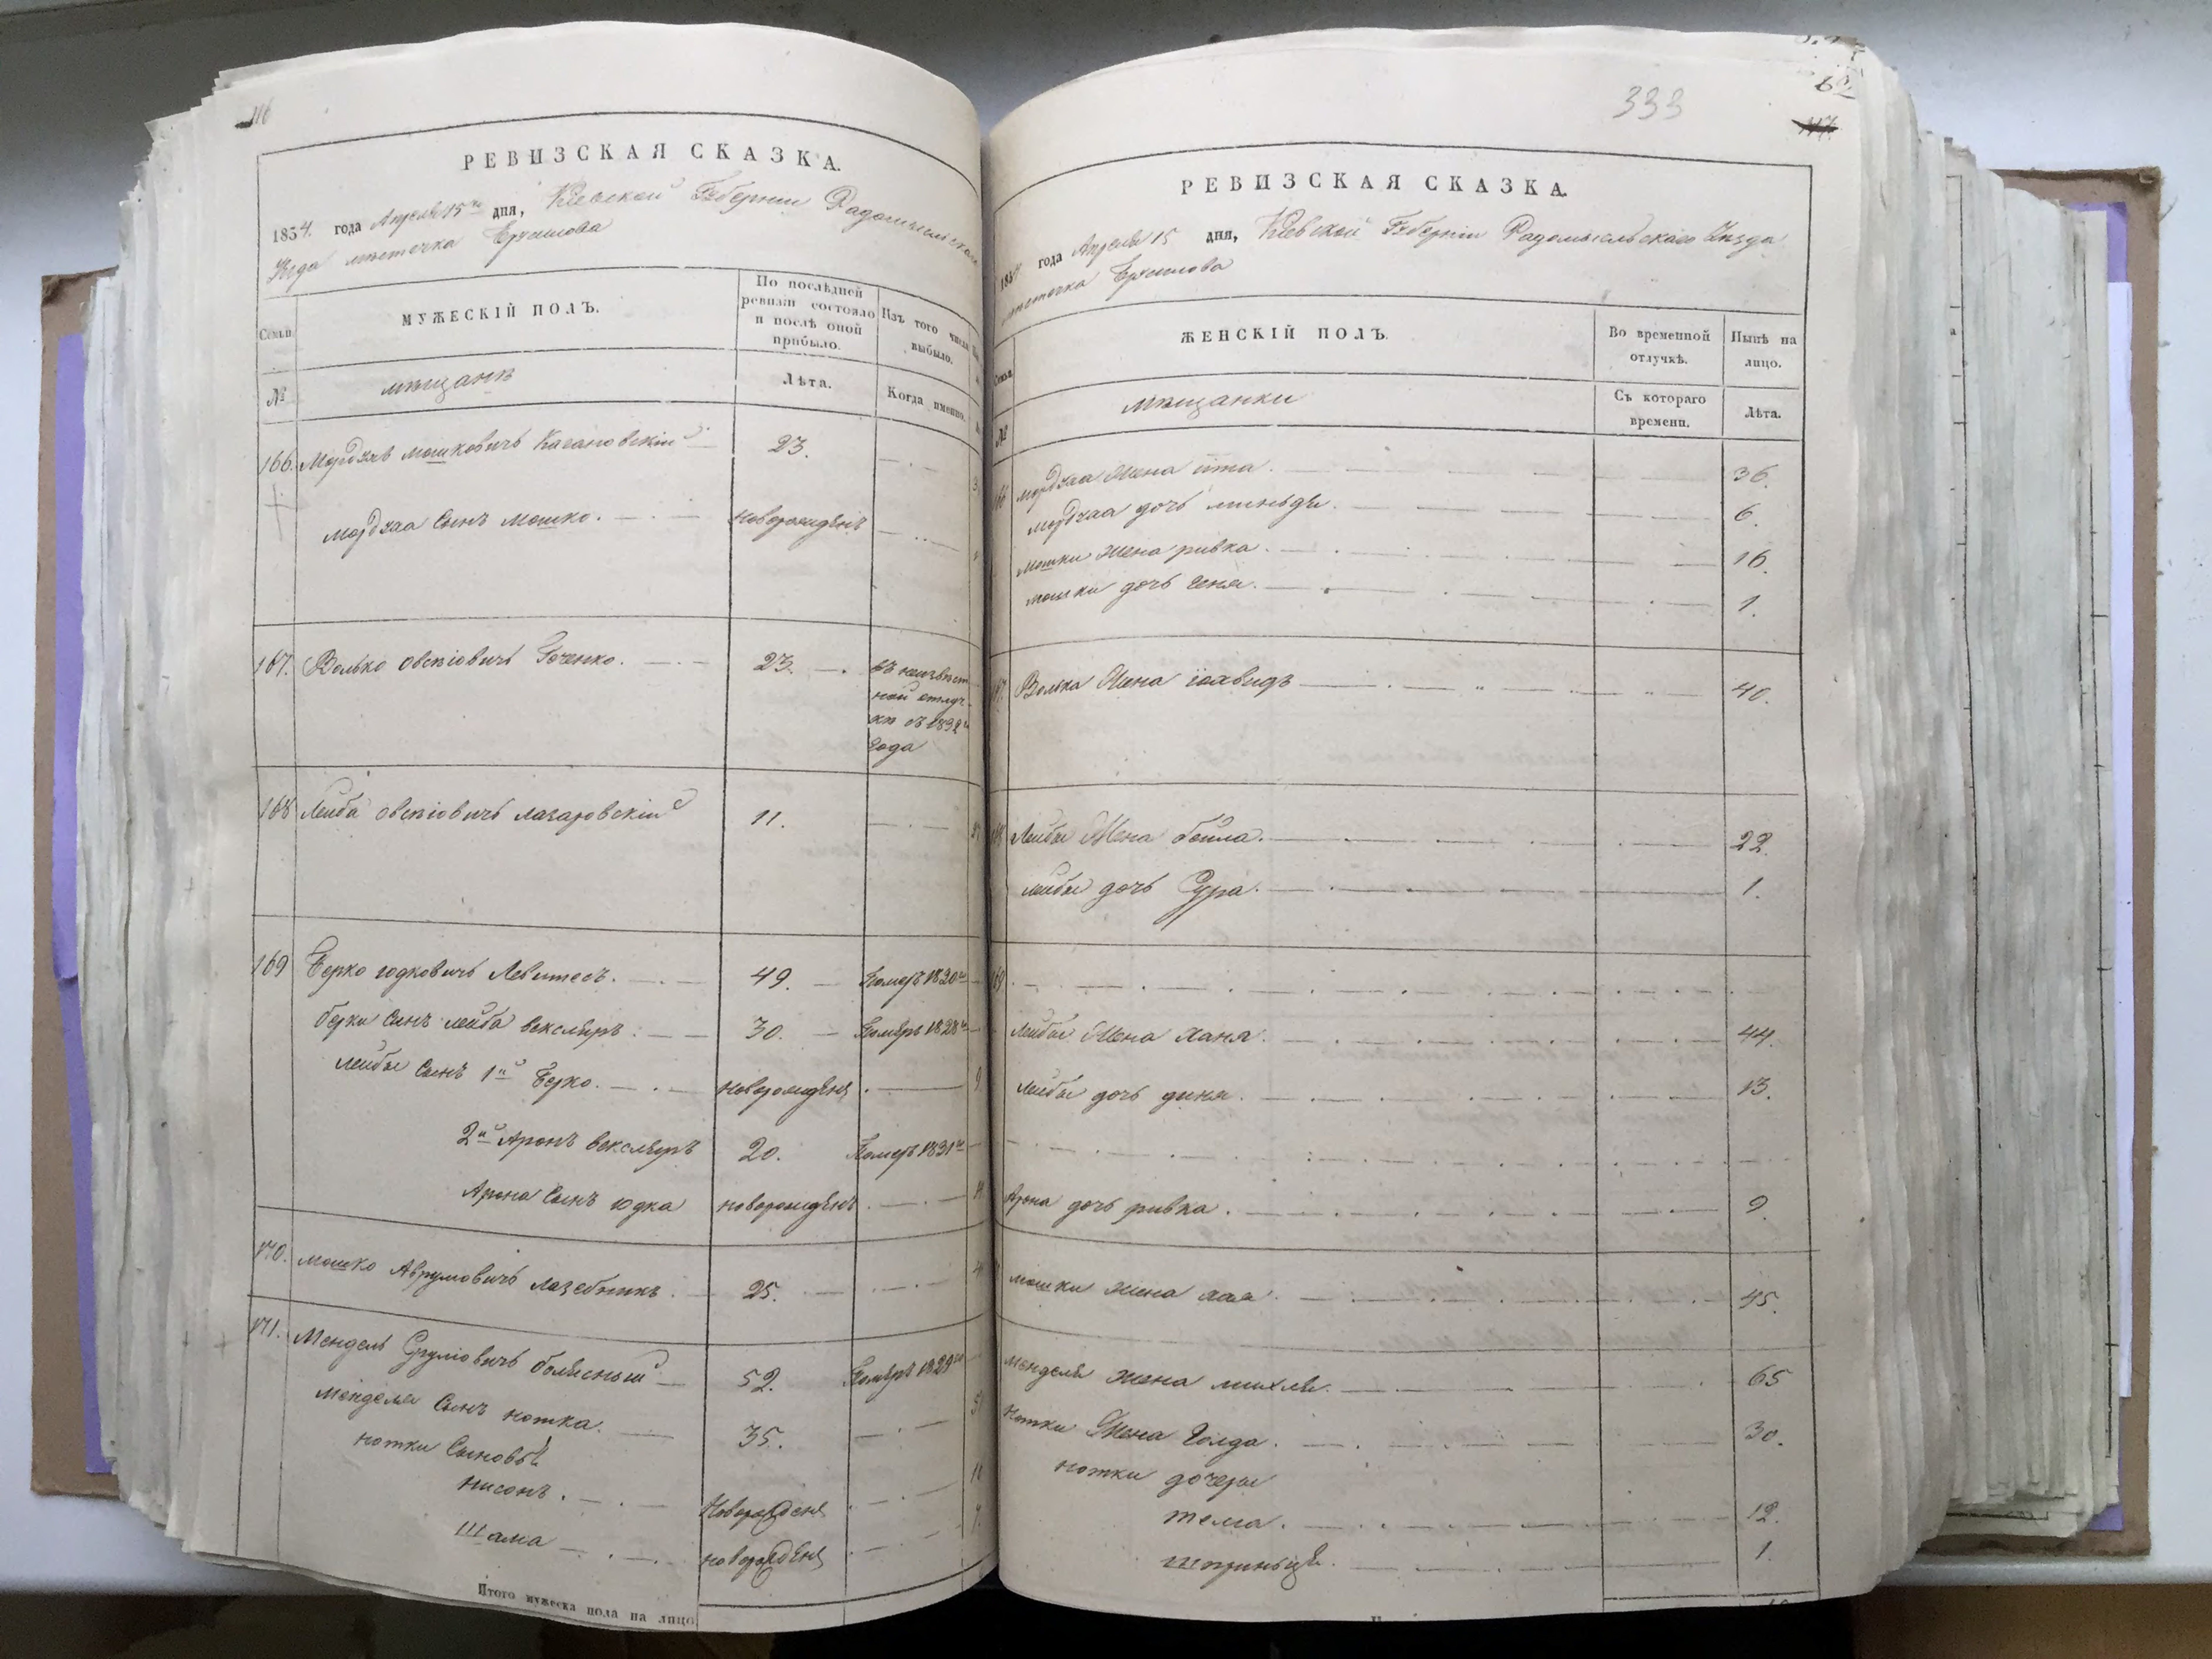 116
РЕВИЗСКАЯ СКАЗКА.
1834. года Апреля 15го дня, Кіевской Губерніи Радомысльскаго
Уезда местечка
МУЖЕСКІЙ ПОЛЪ.
По послѣдней ревизіи состояло и послѣ оной прибыло.
Изъ того числа выбыло.
Семьи
№
мещане
Лѣта.
Когда именно.
166. Мордухъ мошковичъ Кагановскій 23.
мордхаа Сынъ мошко. новорожденъ
167. Волько овсѣіовичъ Гоченко. 23. въ неизвѣст
ной отлуч
кѣ съ 1832го
года
168 Лейба овсѣіовичъ лазаровскій 11.
169 Берко юдковичъ Левитесъ. 49. Померъ 1820го
берки Сынъ лейба векслеръ. 30. Померъ 1828го
лейбы Сынъ 1й Берко. новорожденъ 9
2й Аронъ векслеръ 20. Померъ 1831го
Арона Сынъ юдка новорожденъ
170. мошко Аврумовичъ лазебникъ. 25.
171. Мендель Сруліовичъ болясный 52. Померъ 1829го
Менделя Сынъ нотка. 35.
нотки Сыновья
нисонъ. Новорожденъ
Шама новорожденъ
Итого мужеска пола на лицо
333
РЕВИЗСКАЯ СКАЗКА.
1834 года Апреля 15 дня, Кіевской Губерніи Радомысльскаго Уезда
местечка
ЖЕНСКІЙ ПОЛЪ.
Во временной отлучкѣ.
Нынѣ на лицо.
Семьи
№
мещанки
Съ котораго времени.
Лѣта.
166 мордхаа Жена ита. 36.
мордхаа дочь миньдя. 6.
мошки жена ривка. 16.
мошки дочь Геня. 1.
167 Волька Жена іохвидъ 40.
168 Лейбы Жена бейла. 22.
лейбы дочь Сура. 1.
169
Лейбы Жена Ханя. 44.
Лейбы дочь диня. 13.
Арона дочь ривка. 9.
мошки жена хая. 45.
менделя жена михля. 65
нотки Жена Голда. 30.
нотки дочери
темга. 12.
шприньця. 1.